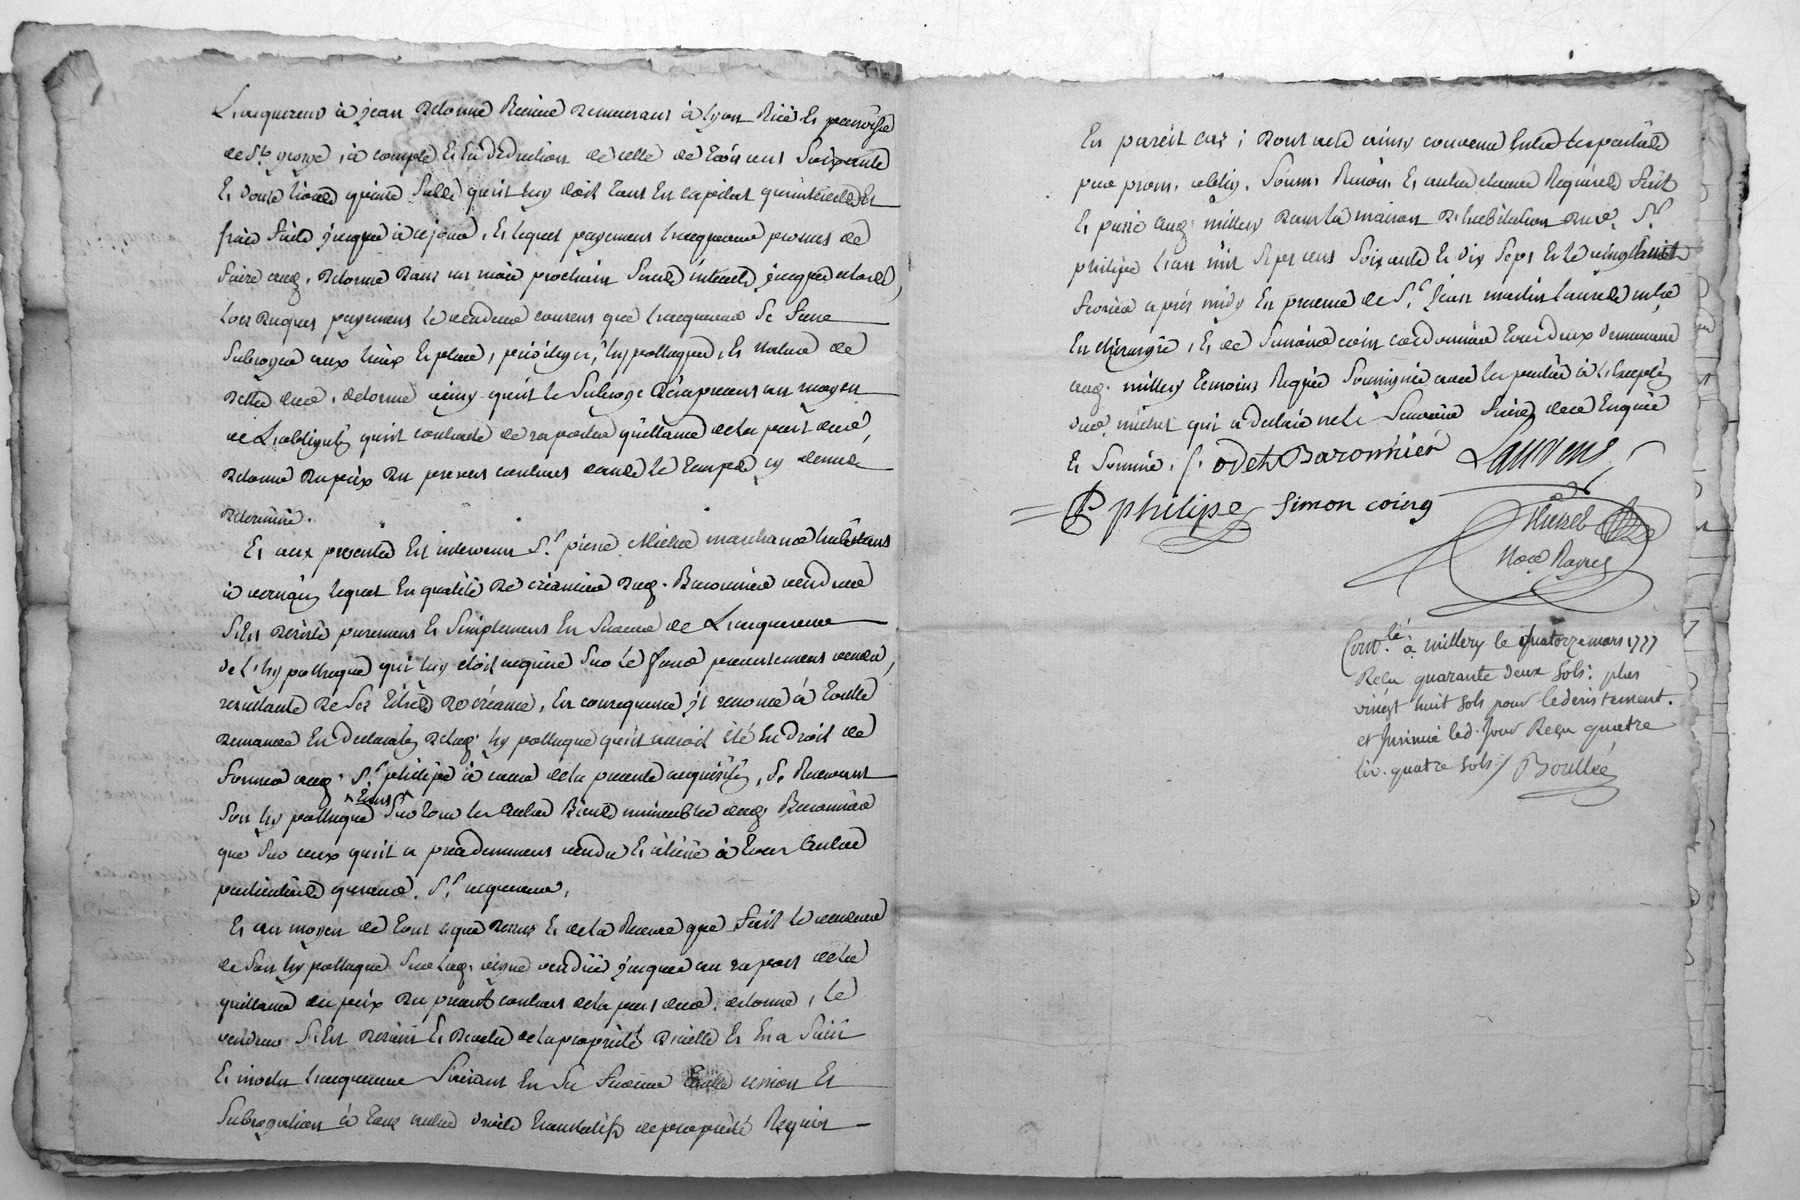 L'acquereur à jean delorme demeurant à Lyon Ruë et parroisse
de St george, à compte et en deduction de celle de trois cens soixante
et douze livres quinze sols qu'il luy doit tant en capital qu'interets et
frais faits jusques à ce jour, et lequel payement l'acquereur promet de
faire aud. delorme dans un mois prochain sans interets jusques alors,
lors duquel payement le vendeur consent que l'acquereur se fasse
subroger aux lieux et place, privileges, hypotheques, et nature de
dette dud. delorme ainsy qu'il le subroge dès à present au moyen
de L'obligaon qu'il contracte de raporter quittance de la part dud.
delorme du prix du present contract dans le temps cy dessus
determiné.
Et aux presentes est intervenu Sr. pierre Michel marchand habitant
à lequel en qualité de créancier dud. Baronnier vendeur
s'est desisté purement et simplement en faveur de L'acquereur
de l'hypotheque qui luy etoit acquise sur le fond presentement vendu,
resultante de ses titres de créance, en consequence il renonce à toute
demande en declaraon delad. hypotheque qu'il auroit été en droit de
former aud. Sr. philipe à cause de la presente acquisition, se reservant
son hypotheque tant sur tous les autres Biens immeubles dud. Baronnier
que sur ceux qu'il a precedemment vendu et aliené à tous autres
particuliers que aud. Sr. acquereur.
Et au moyen de tout ce que dessus et de la Reserve que fait le vendeur
de son hypotheque sur lad. vigne venduë jusques au raport de la
quittance du prix du present contract de la part dud. delorme, le
vendeur s'est demis et devetu de la proprieté d'icelle et en a saisi
et investi l'acquereur faisant en sa faveur toute cession et
subrogation à tous autres droits translatifs de proprieté Requis
En pareil cas; dont acte ainsy convenu entre les parties
par prom. oblig. soum. Renon. et autres clauses Requises fait
et passé aud. millery dans la maison d'habitation dud. Sr.
philipe l'an mil sept cens soixante et dix sept et le vingt huit
fevrier après midy en presence de Sr. jean martin Laurens me
en chirurgie, et de Simond coin cordonnier tous deux demeurant
aud. millery temoins Requis soussignés avec les parties à l'exceptn
dud. michel qui a declaré ne le sçavoir faire de ce Enquis
et sommé. f. odet Baronnier Laurens
P philipe Simon coing
Nore Royal
Conlé à millery le quatorze mars 1777
Reçu quarante deux sols: plus
vingt huit sols pour le desistement.
et Insinué led. jour Reçu quatre
liv. quatre sols / Boullée